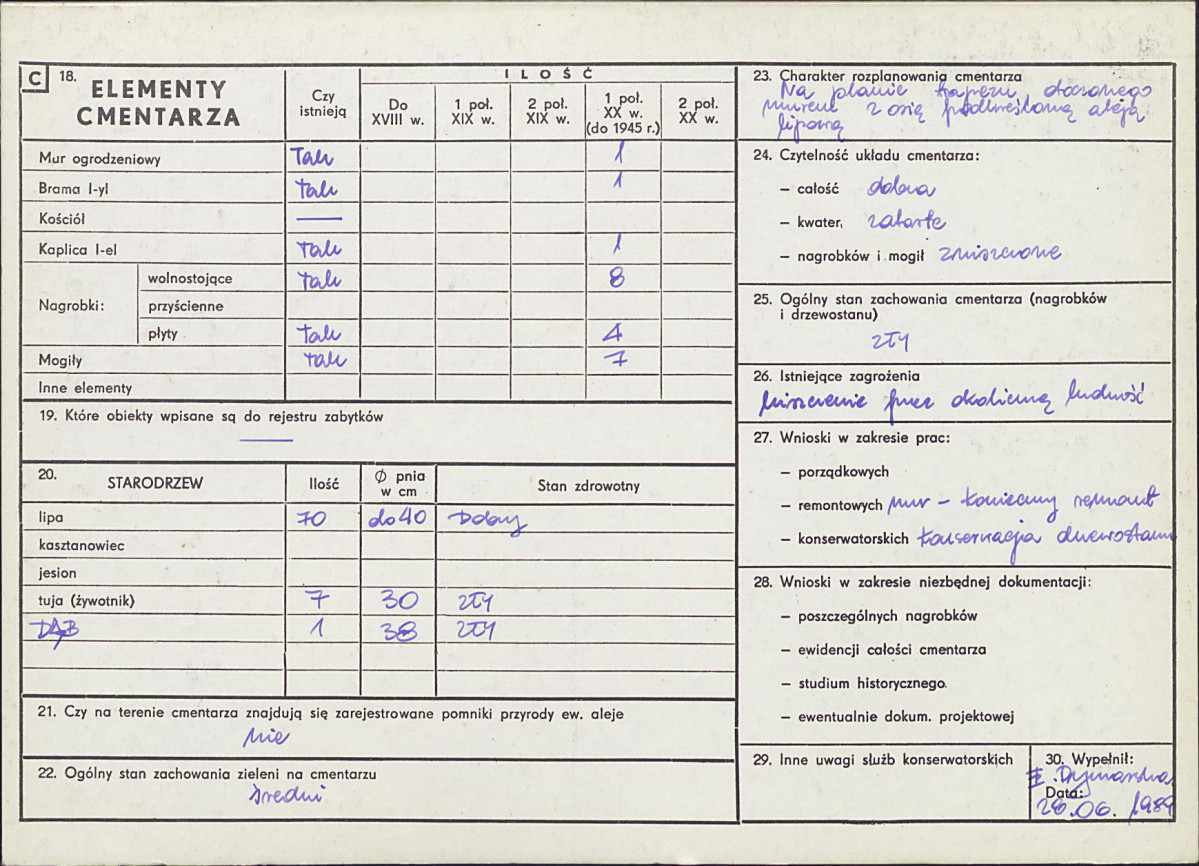 C 18. ELEMENTY CMENTARZA
Czy istnieją
ILOŚĆ
Do XVIII w.
1 poł. XIX w.
2 poł. XIX w.
1 poł. XX w. (do 1945 r.)
2 poł. XX w.
Mur ogrodzeniowy Tak 1
Brama I-yl tak 1
Kościół —
Kaplica I-el tak 1
Nagrobki: wolnostojące tak 8
przyścienne
płyty tak 4
Mogiły tak 7
Inne elementy
19. Które obiekty wpisane są do rejestru zabytków
—
20. STARODRZEW Ilość Ø pnia w cm Stan zdrowotny
lipa 70 do 40 Dobry
kasztanowiec
jesion
tuja (żywotnik) 7 30 zły
DĄB 1 38 zły
21. Czy na terenie cmentarza znajdują się zarejestrowane pomniki przyrody ew. aleje
Nie
22. Ogólny stan zachowania zieleni na cmentarzu
średni
23. Charakter rozplanowania cmentarza
Na planie trapezu otoczonego
murem z osią podkreśloną aleją
lipową
24. Czytelność układu cmentarza:
– całość dobra
– kwater, zatarte
– nagrobków i mogił zniszczone
25. Ogólny stan zachowania cmentarza (nagrobków
i drzewostanu)
zły
26. Istniejące zagrożenia
Niszczenie przez okoliczną ludność
27. Wnioski w zakresie prac:
– porządkowych
– remontowych mur – konieczny remont
– konserwatorskich konserwacja drzewostanu
28. Wnioski w zakresie niezbędnej dokumentacji:
– poszczególnych nagrobków
– ewidencji całości cmentarza
– studium historycznego.
– ewentualnie dokum. projektowej
29. Inne uwagi służb konserwatorskich
30. Wypełnił:
Data:
28.06.1989